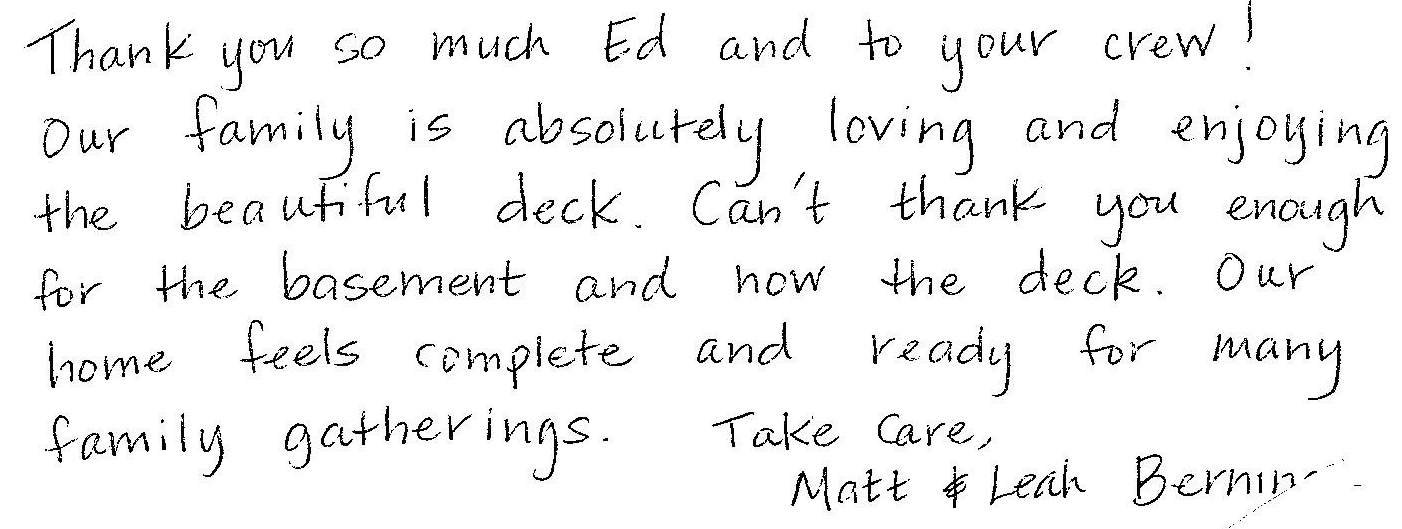 Thank you so much Ed and to your crew!
Our family is absolutely loving and enjoying
the beautiful deck. Can't thank you enough
for the basement and now the deck. Our
home feels complete and ready for many
family gatherings. Take Care,
Matt & Leah